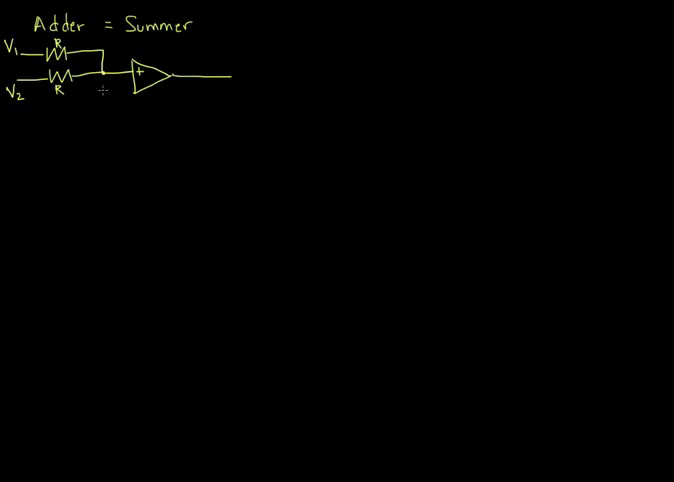 Adder = Summer
V1 R
+
V2 R